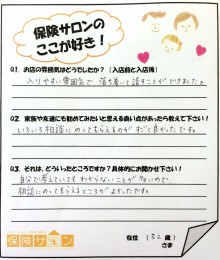 保険サロンの
ここが好き！
Q1. お店の雰囲気はどうでしたか？（入店前と入店後）
入りやすい雰囲気で、落ち着いて話すことができました。
Q2. 家族や友達にも勧めてみたいと思える良い点があったら教えて下さい！
いろいろ相談にのってもらえるのが すごく良かったです。
Q3. それは、どういったところですか？具体的にお聞かせ下さい！
自分で考えていても わからないことが多いので、
相談にのってもらえるところが よかったです。
保険サロン
在住 （32歳）
さま